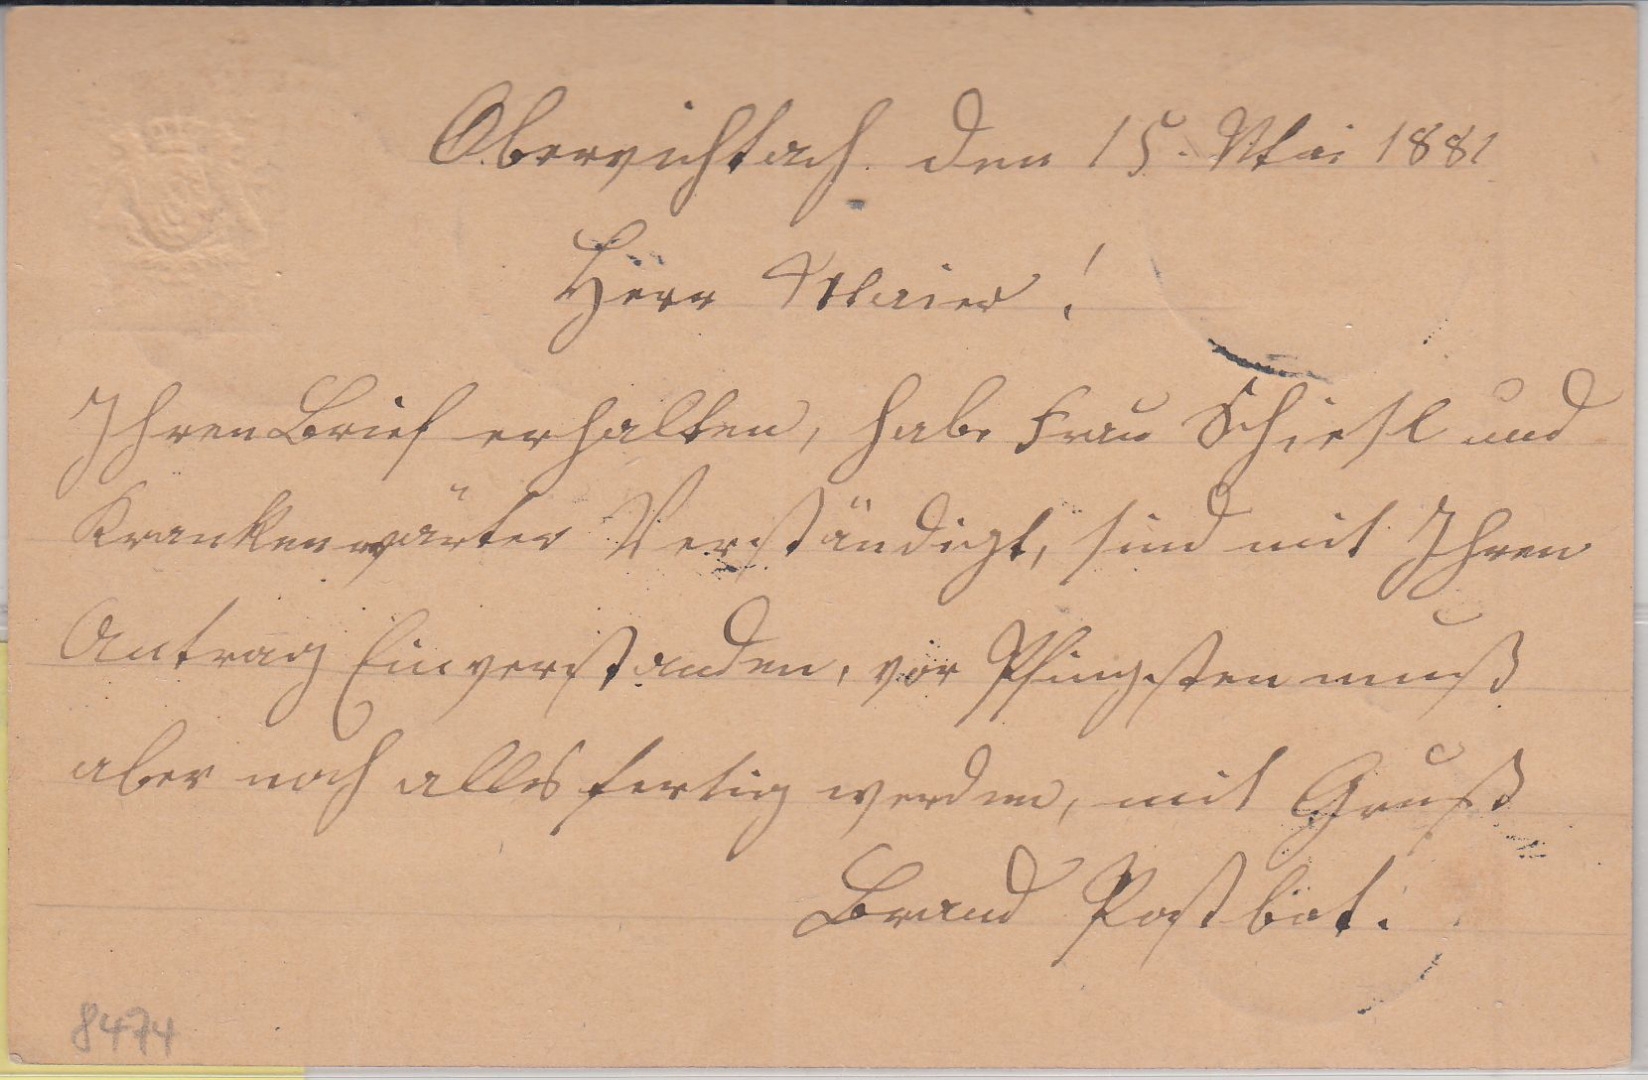 Oberviehtach den 15. Mai 1881
Herr Maier!
Ihren Brief erhalten, habe Frau Schießl und
Krankenwärter Verständigt, sind mit Ihren
Antrag Einverstanden, vor Pfingsten muß
aber noch alles fertig werden, mit Gruß
Brand Postbot.
8474